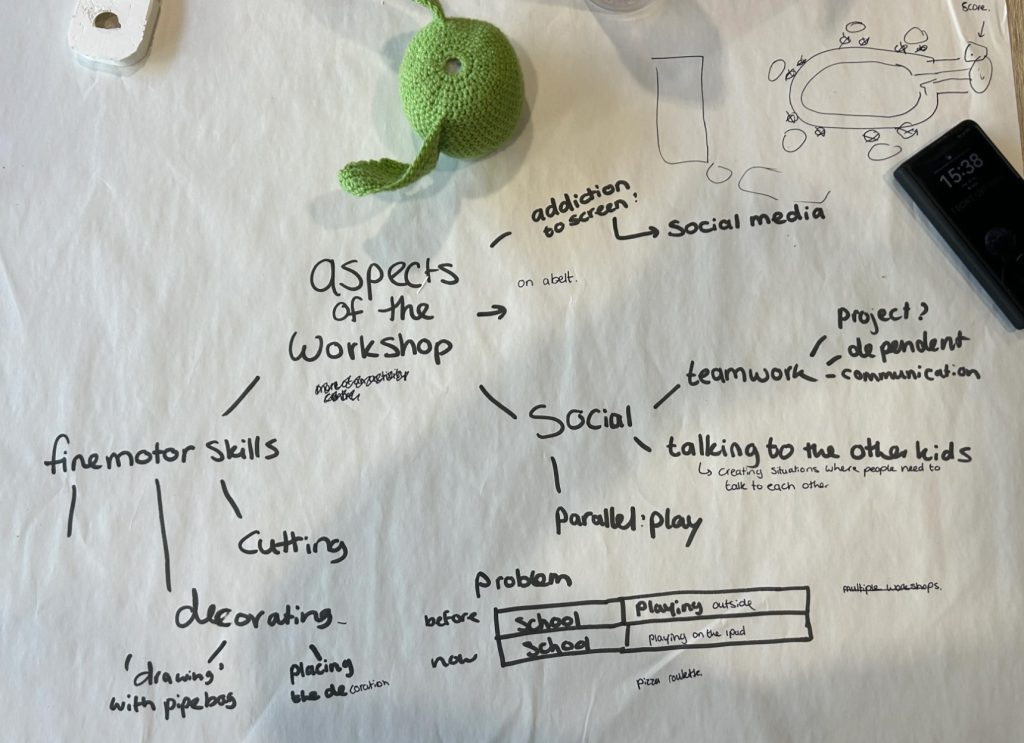 score.
15:38
addiction
to screen!
social media
aspects
of the
workshop
on abelt.
project?
dependent
teamwork
- communication
social
finemotor skills
talking to the other kids
↳ creating situations where people need to
talk to each other
parallel:play
cutting
problem
decorating
before
school
playing outside
now
school
playing on the ipad
multiple workshops.
'drawing'
with pipebag
placing
the decoration
pizza roulette.